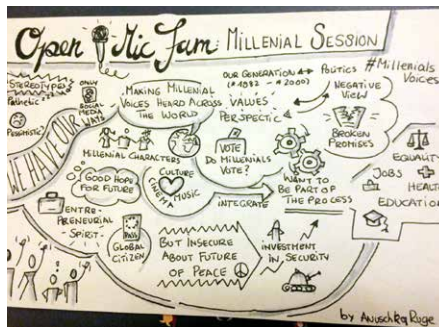 Open Mic Jam MILLENIAL SESSION
STEREOTYPES
Pathetic
Pessimistic
ONLY
SOCIAL
MEDIA
WE HAVE OUR
MAKING MILLENIAL
VOICES HEARD ACROSS
THE WORLD
MILLENIAL CHARACTERS
OUR GENERATION
VALUES
PERSPECTIC
POLITICS
NEGATIVE
VIEW
BROKEN
PROMISES
#Millenials
Voices
VOTE
DO MILLENIALS
VOTE?
GOOD HOPE
FOR FUTURE
CULTURE
CINEMA
MUSIC
INTEGRATE
WANT TO
BE PART OF
THE PROCESS
EQUALITY
JOBS
HEALTH
EDUCATION
ENTRE-
PRENEURIAL
SPIRIT
PASS
GLOBAL
CITIZEN
BUT INSECURE
ABOUT FUTURE
OF PEACE
INVESTMENT
IN SECURITY
by Anuschka Ruge